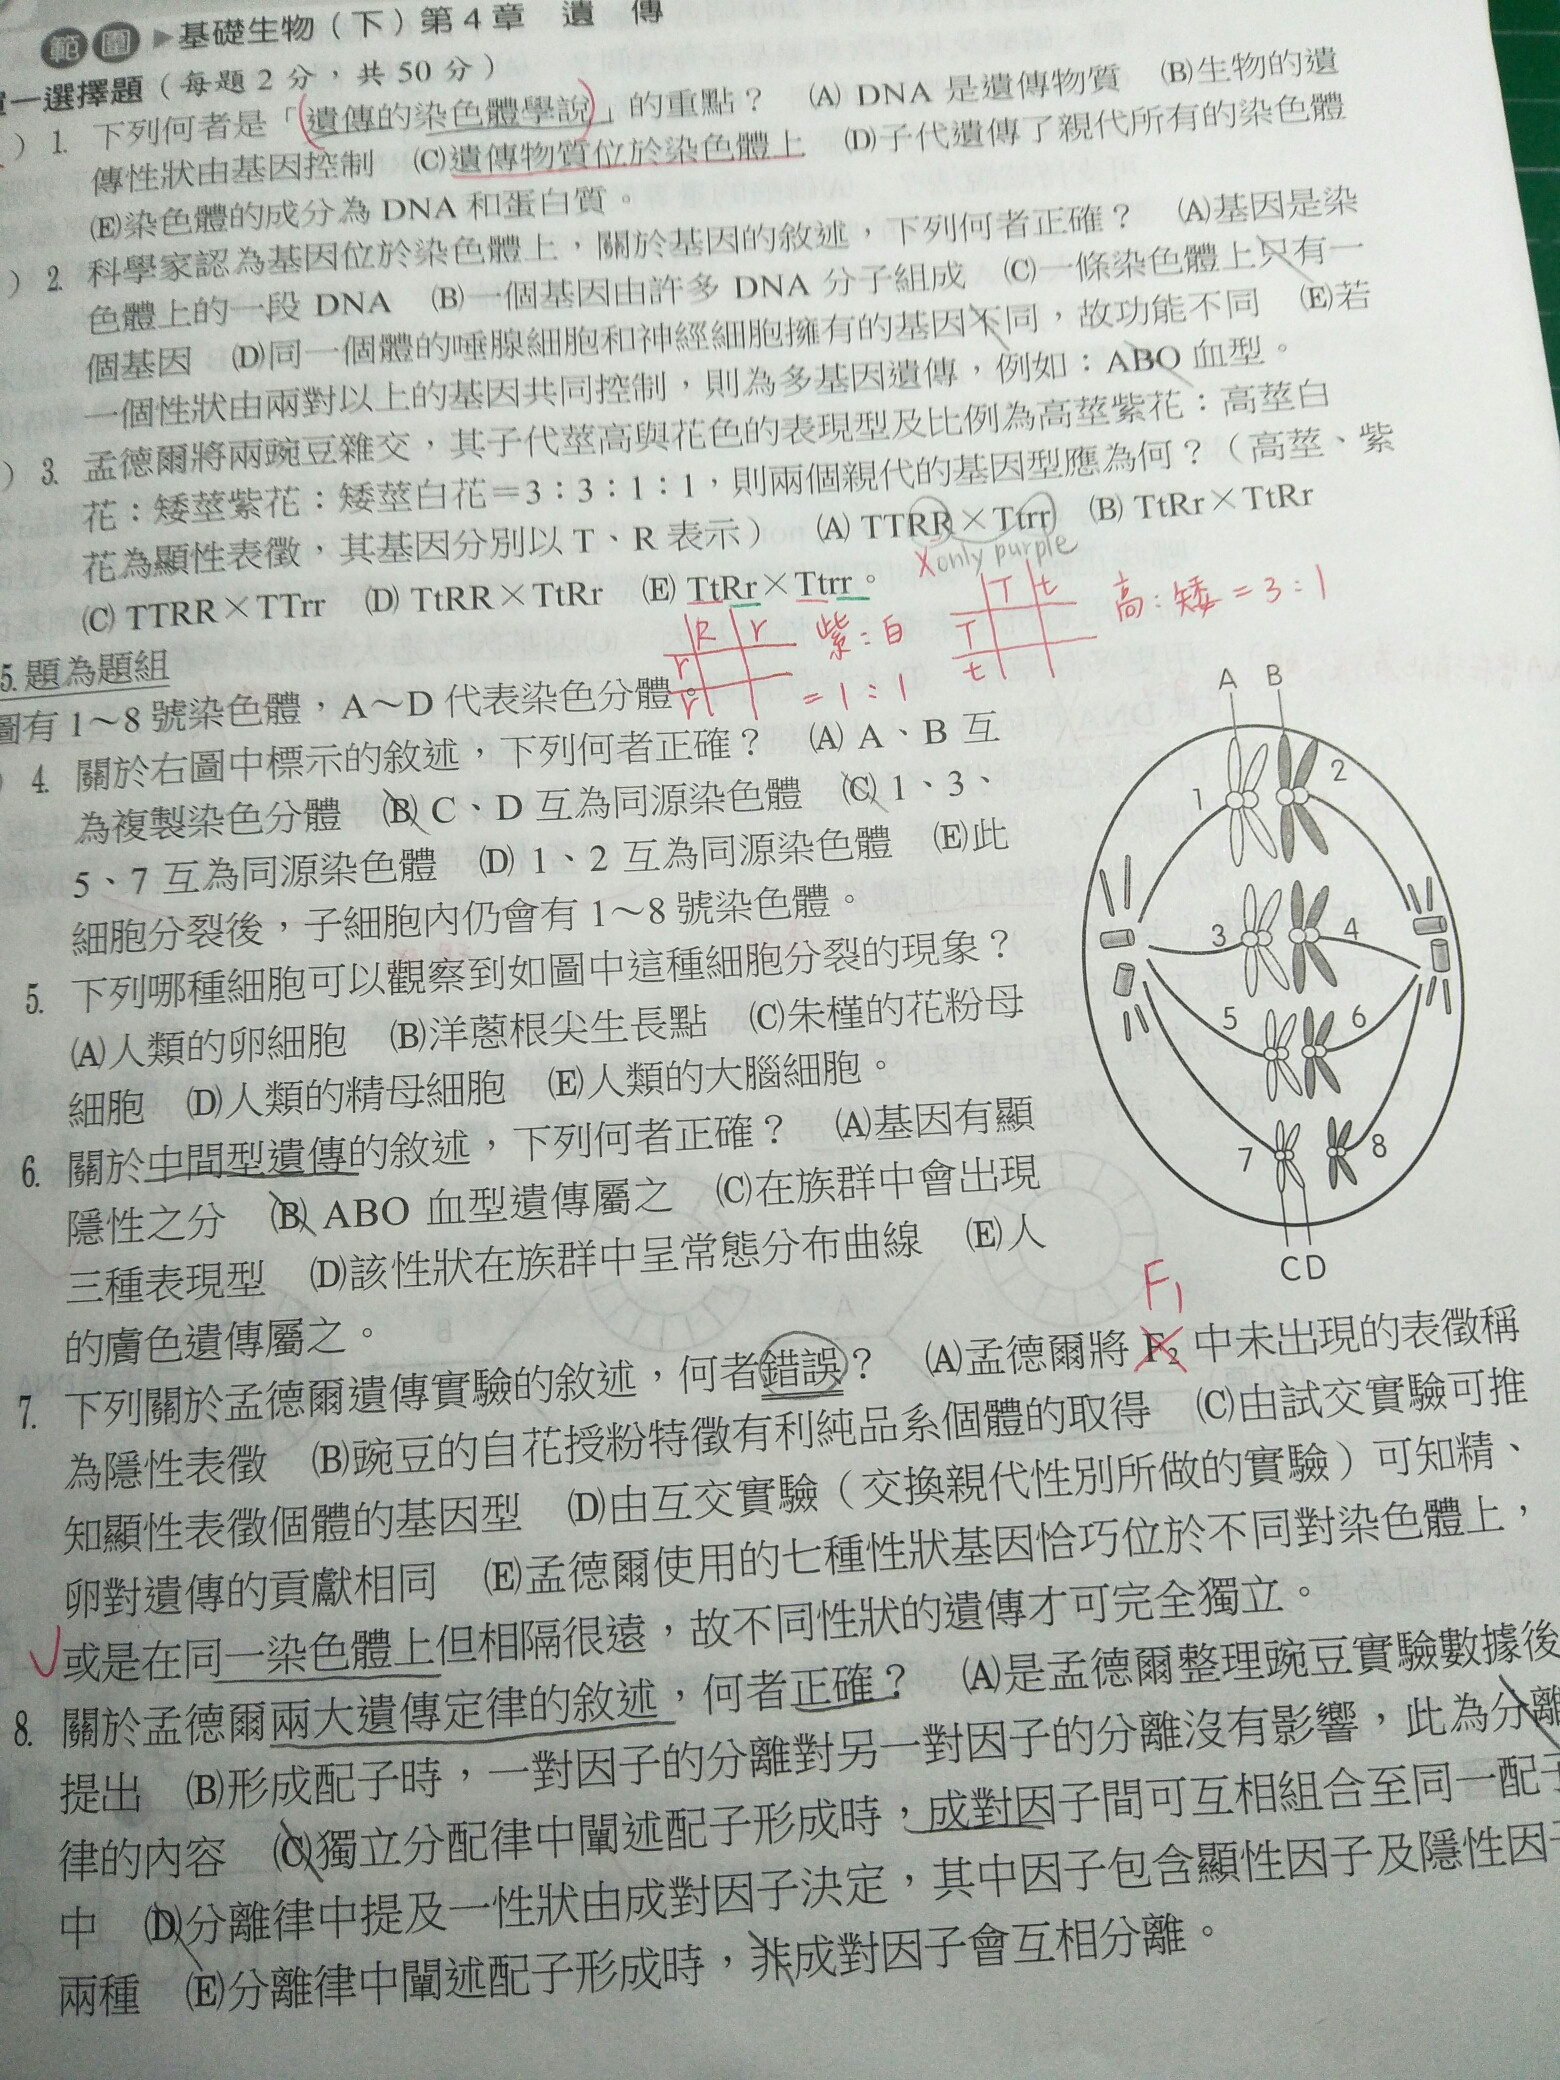 範圍 ▶基礎生物（下）第4章 遺 傳
一選擇題（每題2分，共50分）
) 1. 下列何者是「遺傳的染色體學說」的重點？ (A) DNA 是遺傳物質 (B)生物的遺
傳性狀由基因控制 (C)遺傳物質位於染色體上 (D)子代遺傳了親代所有的染色體
(E)染色體的成分為 DNA 和蛋白質。
) 2. 科學家認為基因位於染色體上，關於基因的敘述，下列何者正確？ (A)基因是染
色體上的一段 DNA (B)一個基因由許多 DNA 分子組成 (C)一條染色體上只有一
個基因 (D)同一個體的唾腺細胞和神經細胞擁有的基因不同，故功能不同 (E)若
一個性狀由兩對以上的基因共同控制，則為多基因遺傳，例如：ABO 血型。
) 3. 孟德爾將兩豌豆雜交，其子代莖高與花色的表現型及比例為高莖紫花：高莖白
花：矮莖紫花：矮莖白花＝3：3：1：1，則兩個親代的基因型應為何？（高莖、紫
花為顯性表徵，其基因分別以 T、R 表示） (A) TTRR×Ttrr (B) TtRr×TtRr
X only purple
(C) TTRR×TTrr (D) TtRR×TtRr (E) TtRr×Ttrr。
R r
r
r
紫：白
= 1：1
T t
T
t
高：矮 = 3：1
5.題為題組
圖有 1～8 號染色體，A～D 代表染色分體。
) 4. 關於右圖中標示的敘述，下列何者正確？ (A) A、B 互
為複製染色分體 (B) C、D 互為同源染色體 (C) 1、3、
5、7 互為同源染色體 (D) 1、2 互為同源染色體 (E)此
細胞分裂後，子細胞內仍會有 1～8 號染色體。
5. 下列哪種細胞可以觀察到如圖中這種細胞分裂的現象？
(A)人類的卵細胞 (B)洋蔥根尖生長點 (C)朱槿的花粉母
細胞 (D)人類的精母細胞 (E)人類的大腦細胞。
A B
1 2
3 4
5 6
7 8
C D
6. 關於中間型遺傳的敘述，下列何者正確？ (A)基因有顯
隱性之分 (B) ABO 血型遺傳屬之 (C)在族群中會出現
三種表現型 (D)該性狀在族群中呈常態分布曲線 (E)人
的膚色遺傳屬之。
F1
7. 下列關於孟德爾遺傳實驗的敘述，何者錯誤？ (A)孟德爾將 F2 中未出現的表徵稱
為隱性表徵 (B)豌豆的自花授粉特徵有利純品系個體的取得 (C)由試交實驗可推
知顯性表徵個體的基因型 (D)由互交實驗（交換親代性別所做的實驗）可知精、
卵對遺傳的貢獻相同 (E)孟德爾使用的七種性狀基因恰巧位於不同對染色體上，
或是在同一染色體上但相隔很遠，故不同性狀的遺傳才可完全獨立。
8. 關於孟德爾兩大遺傳定律的敘述，何者正確？ (A)是孟德爾整理豌豆實驗數據後
提出 (B)形成配子時，一對因子的分離對另一對因子的分離沒有影響，此為分離
律的內容 (C)獨立分配律中闡述配子形成時，成對因子間可互相組合至同一配子
中 (D)分離律中提及一性狀由成對因子決定，其中因子包含顯性因子及隱性因子
兩種 (E)分離律中闡述配子形成時，非成對因子會互相分離。